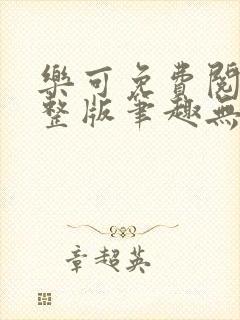 樂可免費閱
整版筆趣無
章超英